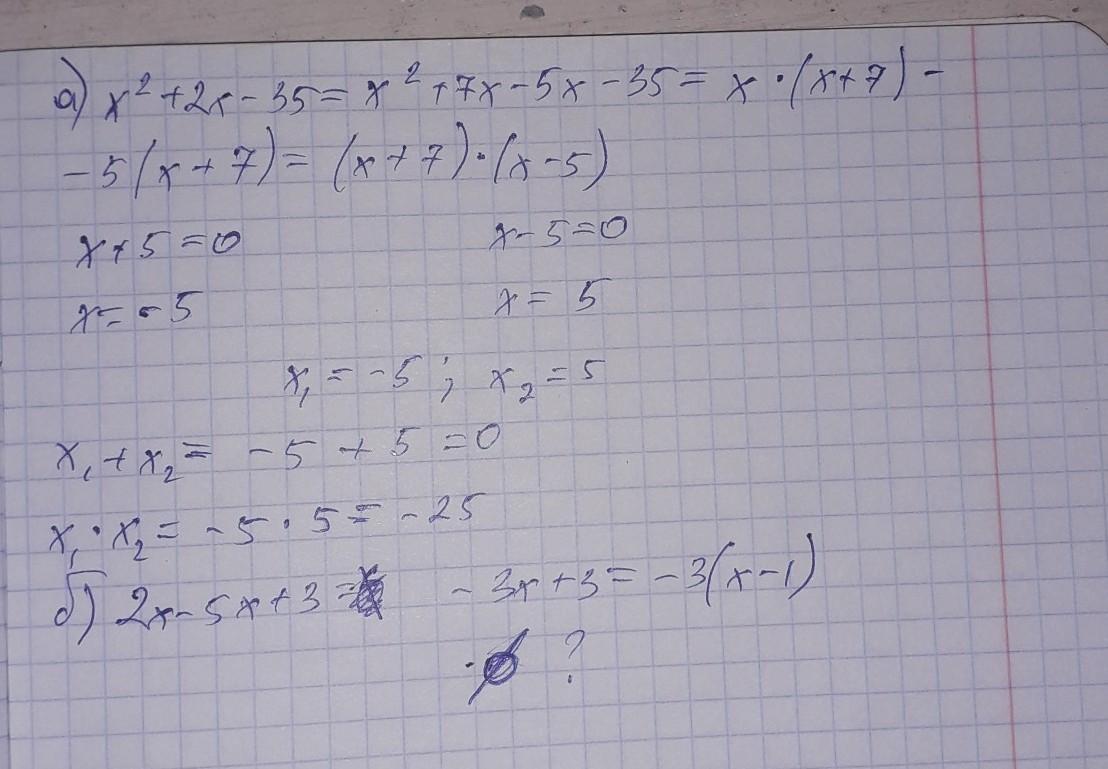 а) x² + 2x - 35 = x² + 7x - 5x - 35 = x · (x + 7) -
- 5(x + 7) = (x + 7) · (x - 5)
x + 5 = 0 x - 5 = 0
x = - 5 x = 5
x₁ = -5 ; x₂ = 5
x₁ + x₂ = -5 + 5 = 0
x₁ · x₂ = -5 · 5 = -25
б) 2x - 5x + 3 = - 3x + 3 = -3(x - 1)
?